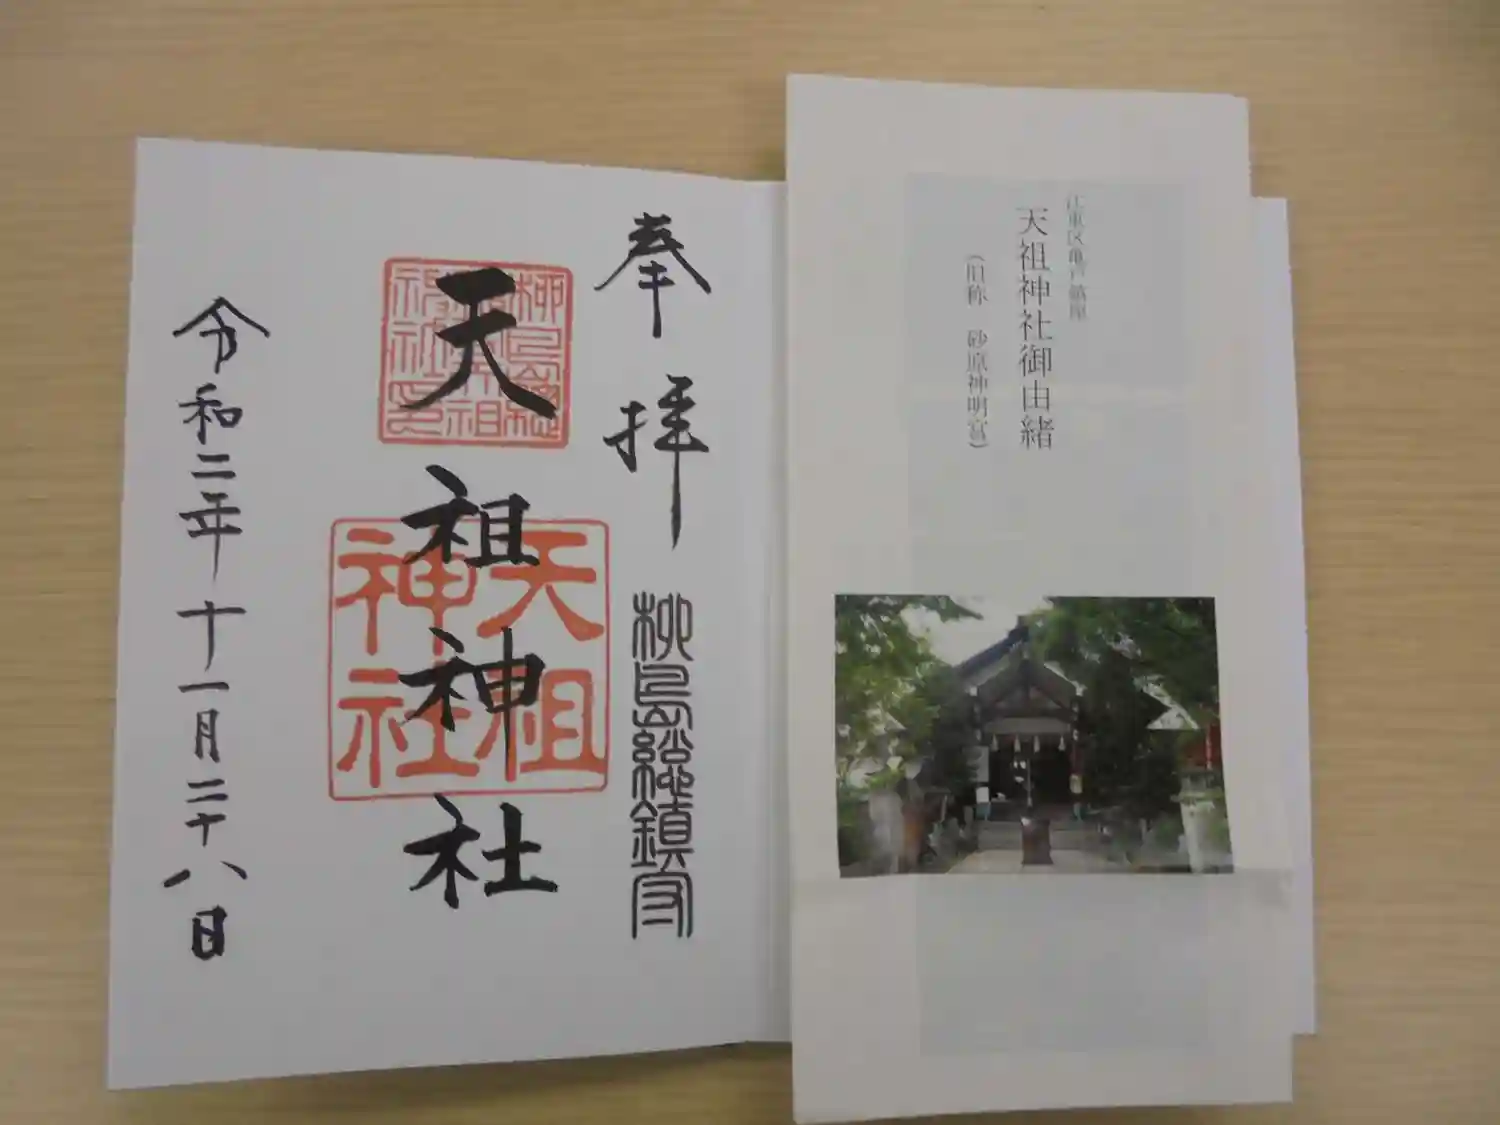 江東区亀戸鎮座
天祖神社御由緒
（旧称　砂原神明宮）
奉拝
柳島総鎮守
天祖神社
天祖
神社
令和二年十一月二十八日